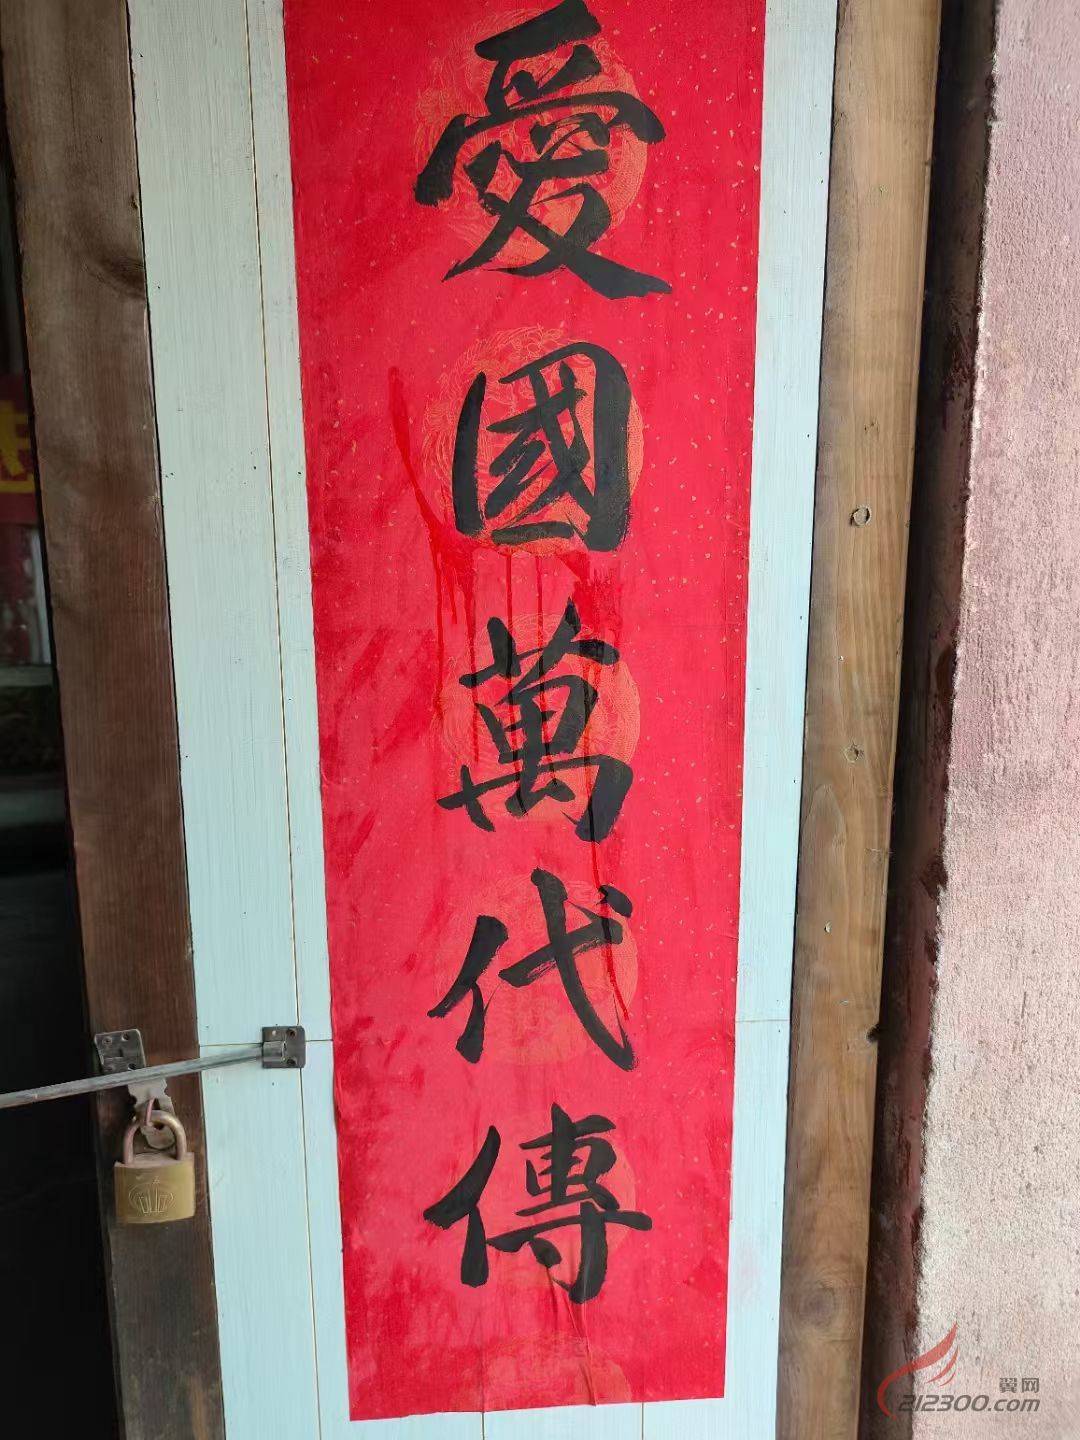 愛國萬代傳
翼网
212300.com